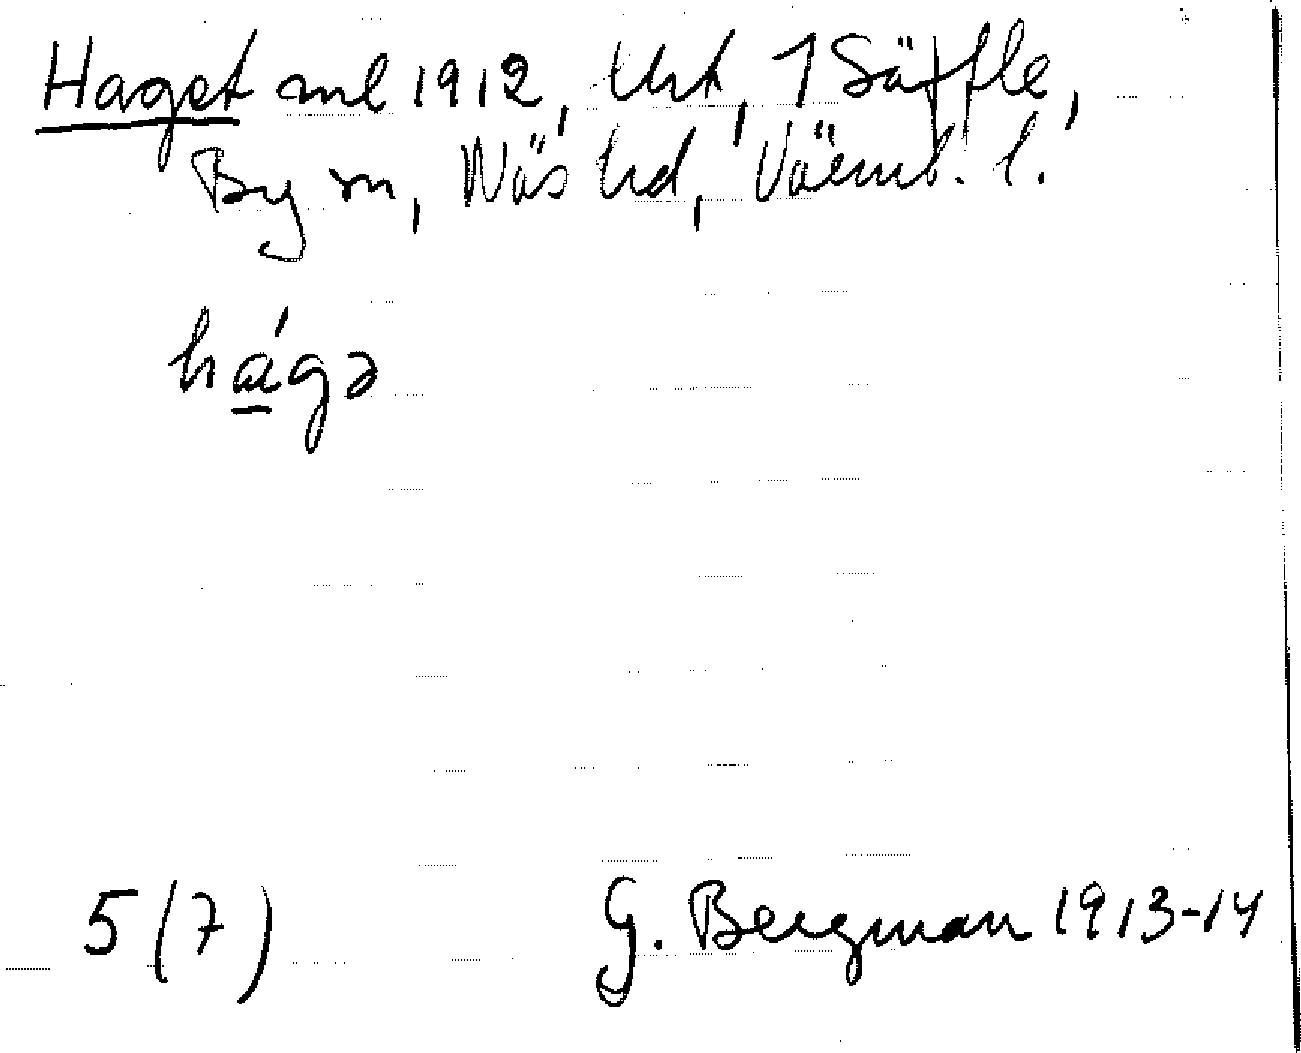 Haget ml 1912, Urt, 1 Säffle,
By sn, Näs hd, Värml. l.
hágə
5(7) G. Bergman 1913-14